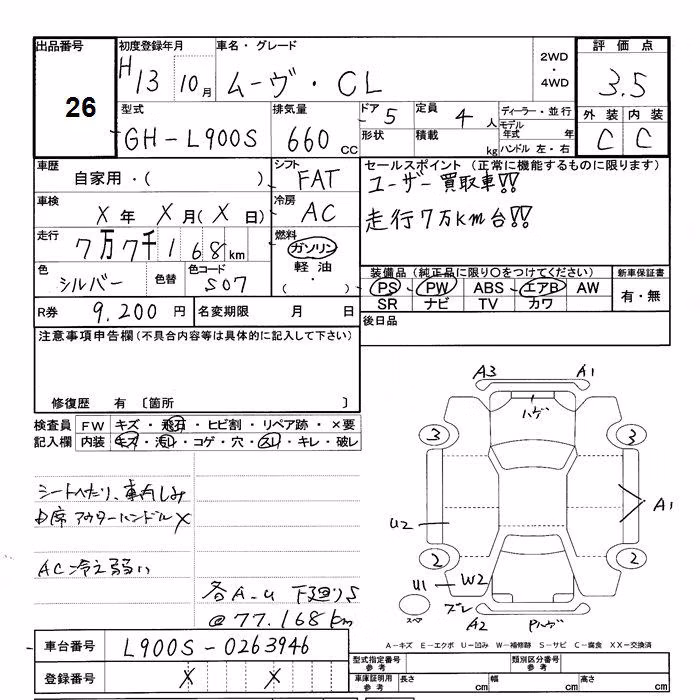 出品番号 初度登録年月 車名・グレード 2WD ・ 4WD 評価点
26 H13 10月 ムーヴ・CL 3.5
型式 排気量 ドア 5 定員 4人 ディーラー・並行 外装 内装
GH-L900S 660cc 形状 積載 kg モデル年式 年 C C
ハンドル 左・右
車歴 シフト セールスポイント (正常に機能するものに限ります)
自家用・( ) FAT ユーザー買取車!!
車検 冷房
X年 X月(X日) AC 走行7万km台!!
走行 燃料
7万7千168km ガソリン
色 色替 色コード 軽油
シルバー S07 ( ・ )
装備品 (純正品に限り○をつけてください) 新車保証書
PS・PW ABS・エアB AW 有・無
SR ナビ TV カワ
R券 9,200円 名変期限 月 日 後日品
注意事項申告欄(不具合内容等は具体的に記入して下さい)
修復歴 有 〔箇所 〕
検査員 FW キズ・飛石・ヒビ割・リペア跡・×要
記入欄 内装 キズ・汚レ・コゲ・穴・スレ・キレ・破レ
シートへたり、車内しみ
AC冷え弱い
各A-U 下廻りS
@77.168km
A3 A1
ハゲ
3 3
A1
U2
2 2
U1 W2
スペア ズレ A2 Pハゲ
A-キズ E-エクボ U-凹み W-補修跡 S-サビ C-腐食 XX-交換済
車台番号 L900S-0263946
登録番号 X X
型式指定番号 参考 類別区分番号 参考
車庫証明用 参考 長さ cm 幅 cm 高さ cm